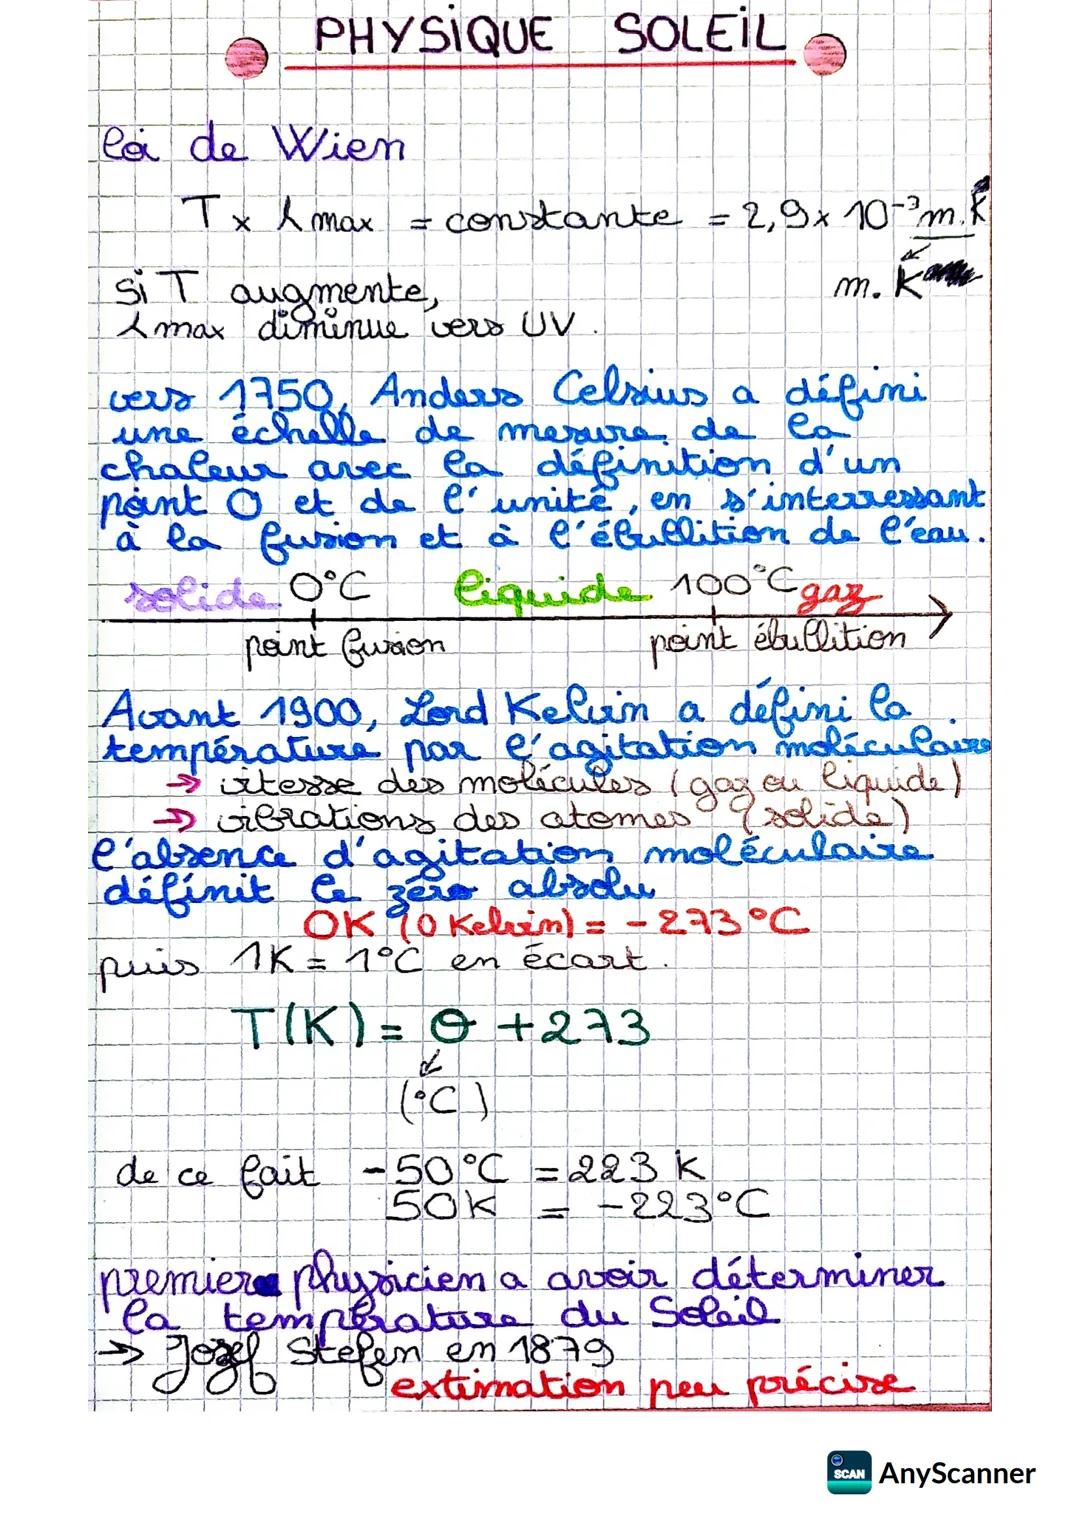 PHYSIQUE SOLEIL
loi de Wien
T x λmax = constante = 2,9 x 10⁻³ m.K
m. K
si T augmente,
λmax diminue vers UV.
vers 1750, Anders Celsius a défini
une échelle de mesure de la
chaleur avec la définition d'un
point O et de l'unité, en s'interressant
à la fusion et à l'ébullition de l'eau.
solide 0°C liquide 100°C gaz
point fusion point ébullition
Avant 1900, Lord Kelvin a défini la
température par l'agitation moléculaire.
→ vitesse des molécules (gaz ou liquide)
→ vibrations des atomes (solide)
l'absence d'agitation moléculaire
définit le zéro absolu
OK (0 Kelvin) = -273°C
puis 1K = 1°C en écart.
T(K) = θ + 273
(°C)
de ce fait -50°C = 223 K
50K = -223°C
premier physicien a avoir déterminer
la température du Soleil
→ Jozef Stefen en 1879
extimation peu précise
SCAN AnyScanner